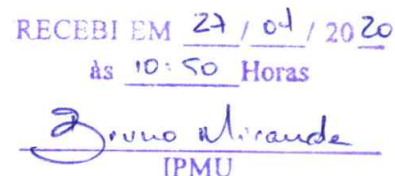 RECEBI EM 27 / 01 / 2020
às 10:50 Horas
Bruno Miranda
IPMU